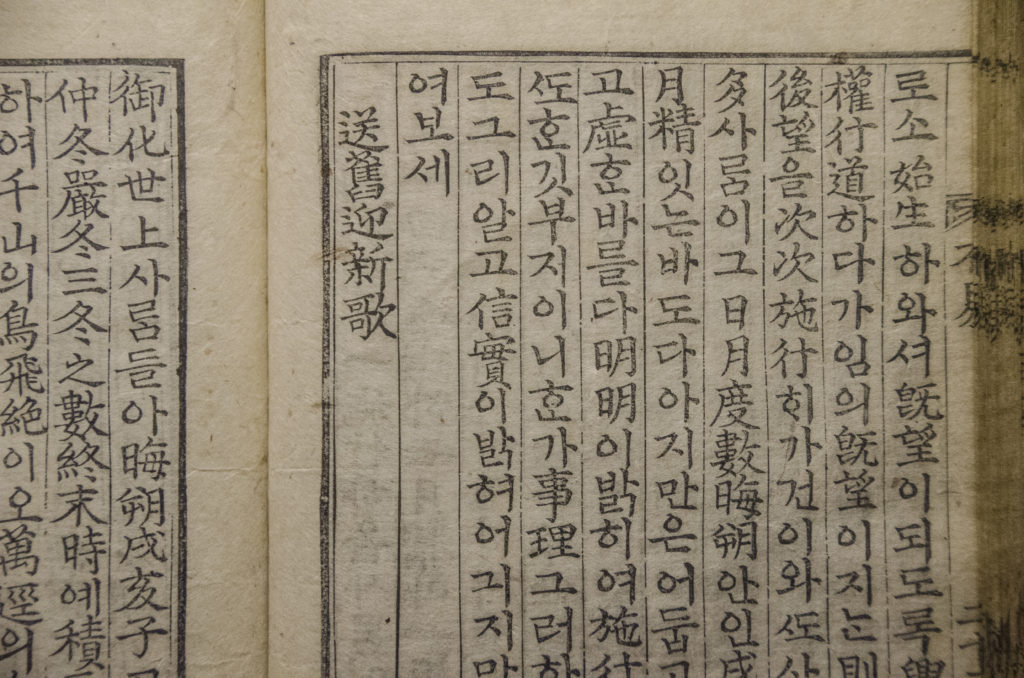 로소始生하와셔旣望이되도록
權行道하다가임의旣望이지ᄂᆞᆫ則
後望을次次施行ᄒᆡ가건이와ᄯᅩ사
多사ᄅᆞᆷ이그日月度數晦朔안인戌
月精잇는바도다아지만은어둡고
고虛ᄒᆞᆫ바를다明明이밝히여施行
ᄯᅩᄒᆞᆫ깃부지이니ᄒᆞᆫ가事理그러하
도그리알고信實이밝혀어긔지마
여보세
送舊迎新歌
御化世上사ᄅᆞᆷ들아晦朔戌亥子
仲冬嚴冬三冬之數終末時예積
하여千山의鳥飛絶이오萬逕의